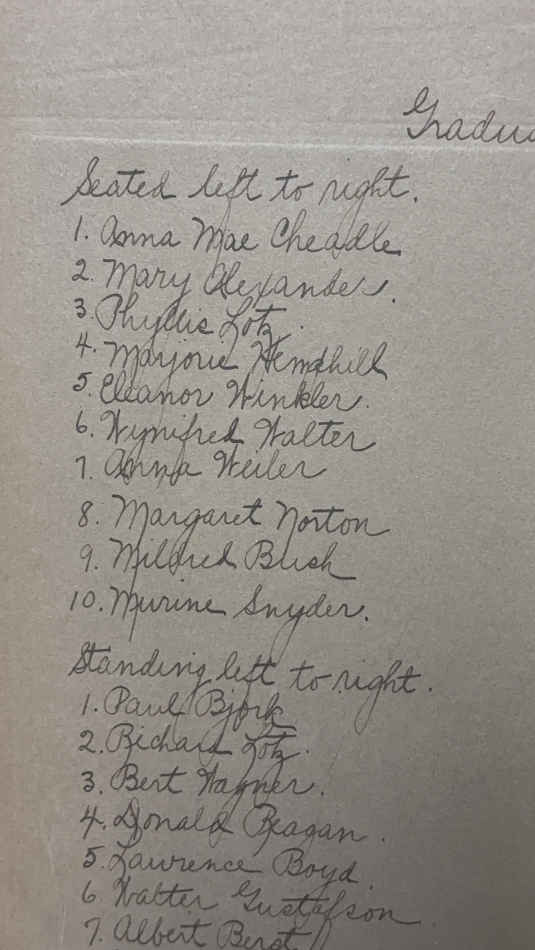 Gradu
Seated left to right.
1. Anna Mae Cheadle
2. Mary Alexander.
3. Phyllis Lotz.
4. Marjorie Hemphill
5. Eleanor Winkler.
6. Wynifred Walter
7. Anna Weiler
8. Margaret Norton
9. Mildred Bush
10. Murine Snyder.
Standing left to right.
1. Paul Bjork
2. Richard Lotz.
3. Bert Wagner.
4. Donald Reagan.
5. Lawrence Boyd.
6. Walter Gustafson.
7. Albert Berst